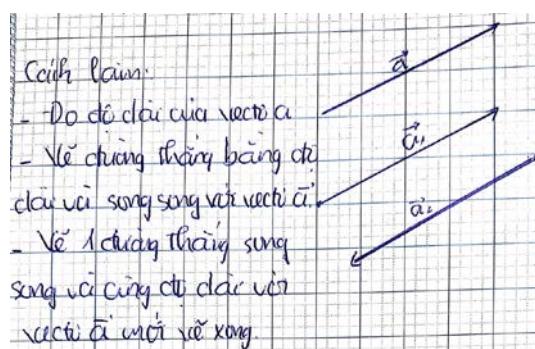 Cách làm:
- Đo độ dài của vectơ a
- Vẽ đường thẳng bằng độ
dài và song song với vectơ a⃗
- Vẽ 1 đường thẳng song
song và cùng độ dài với
vectơ a⃗ mới vẽ xong.
a⃗
a⃗₁
a⃗₂